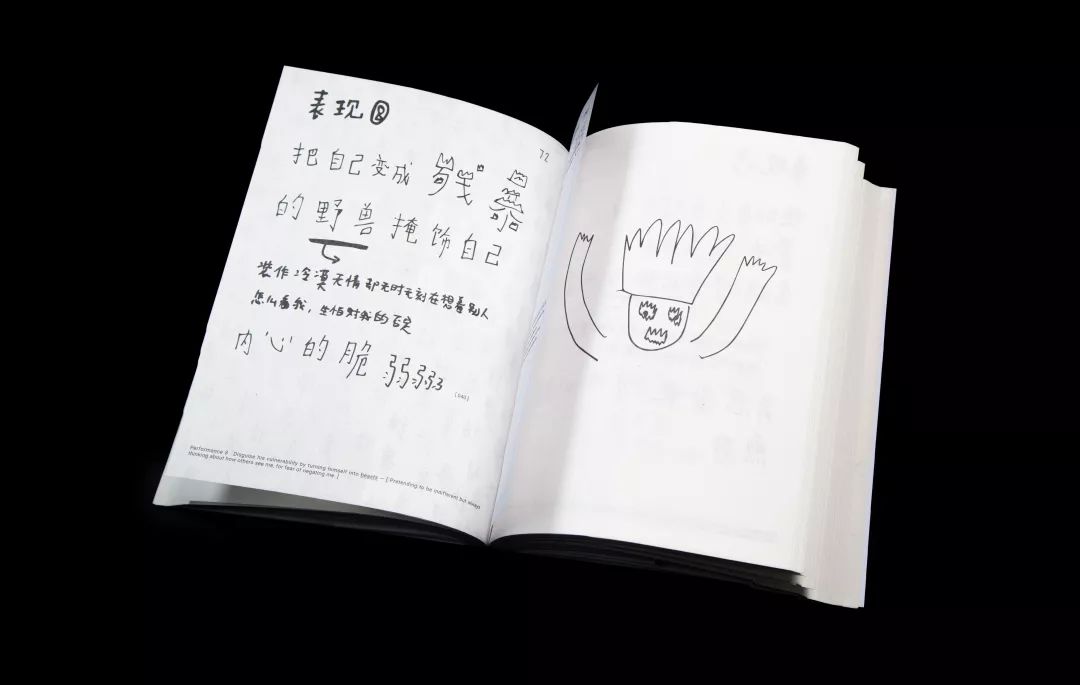 表现⑧
72
把自己变成
的野兽掩饰自己
装作冷漠无情 却无时无刻在想着别人
怎么看我，生怕对我的否定
内心的脆弱
[040]
Performance 8 Disguise his vulnerability by turning himself into beasts — [ Pretending to be indifferent but always
thinking about how others see me, for fear of negating me. ]